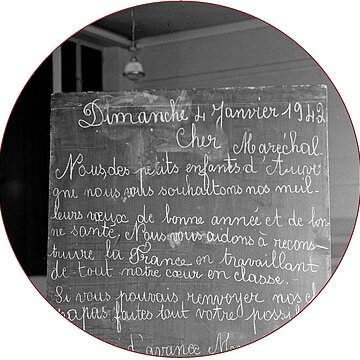 Dimanche 4 Janvier 1942
Cher Maréchal
Nous des petits enfants d'Auver
gne nous vous souhaitons nos meil-
leurs vœux de bonne année et de bon
ne santé, Nous vous aidons à recons-
truire la France en travaillant
de tout notre cœur en classe.
Si vous pouvais renvoyer nos ch
papas faites tout votre possi
d'avance M